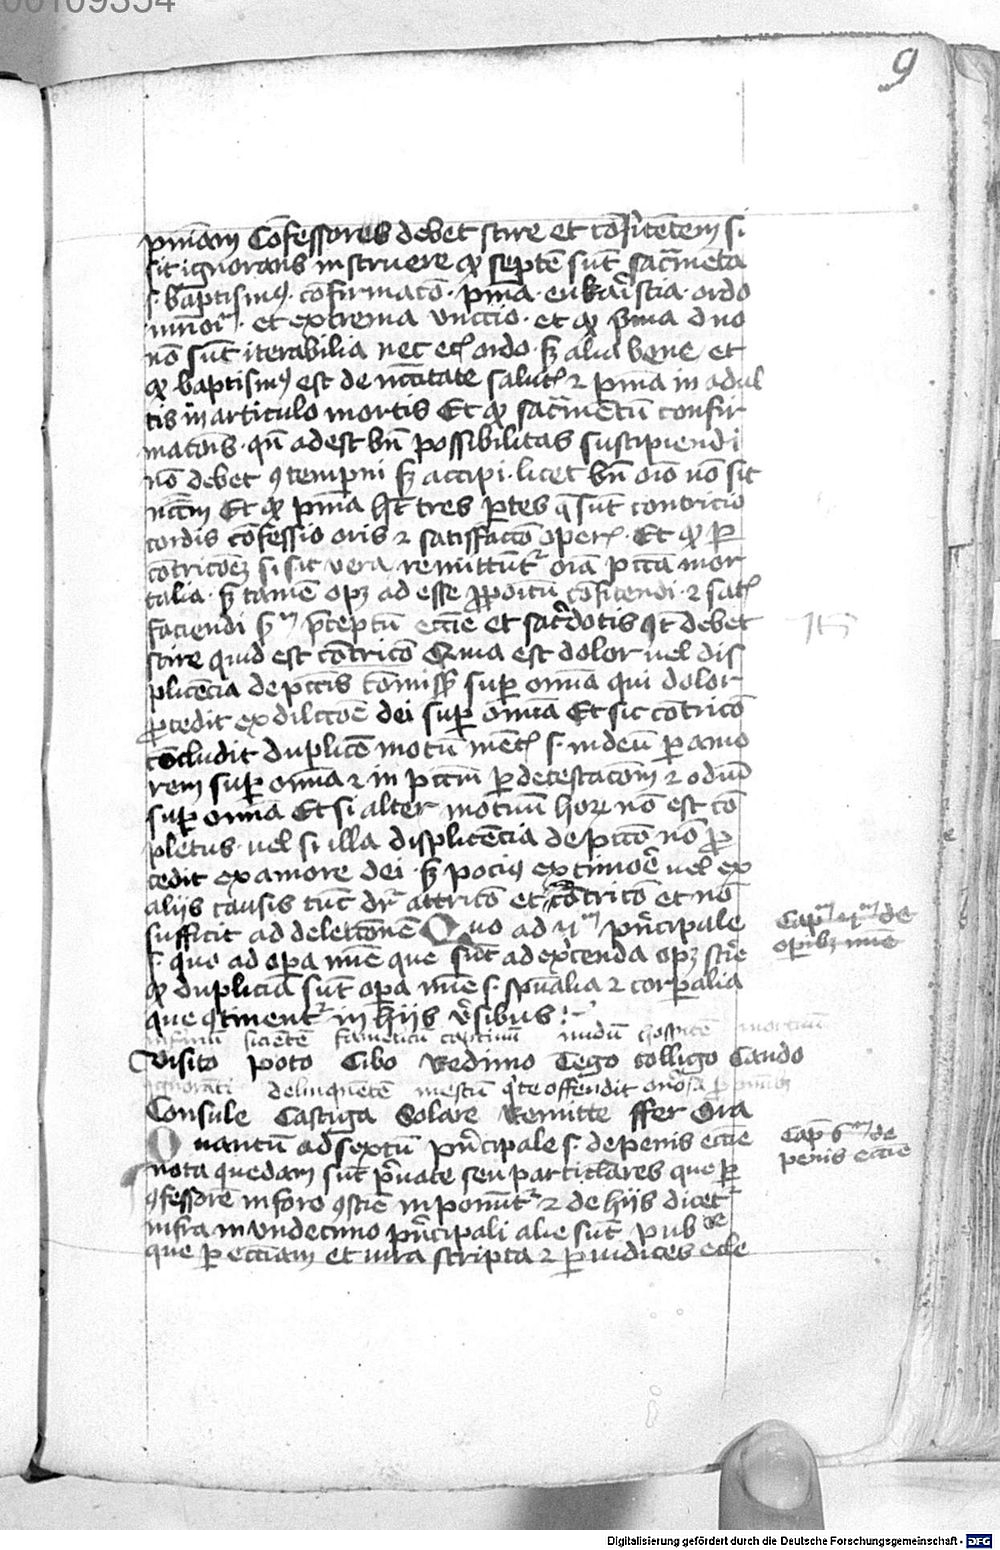 00109354
9
pniam Confessores debet scire et confitentem si
sit ignorans instruere qꝫ septē sūt sacramēta
s. baptismꝰ. cōfirmatō. pnīa. eukaristia. ordo
et extrema vnctio. et qꝫ pīma duo
nō sūt iterabilia nec etꝫ ordo. sꝫ alia bene et
qꝫ baptismꝰ est de nccītate saluti ⁊ pnīa in adul
tis in articulo mortis Et qꝫ sacramentū confir
matōis. qn̄ adest bn̄ possibilitas suscipiendi
nō debet ꝯtempni sꝫ accipi. licet bn̄ oīo nō sit
nccm̄ Et qꝫ pnīa hꝫ tres ptes q̄ sūt contricio
cordis cōfessio oris ⁊ satisfactō operꝫ. Et qꝫ ꝑ
cōtricōeꝫ si sit vera remittūtꝰ oīa pctā mor
talia. sꝫ tamē opꝫ adesse ꝓpoitū cōfitendi. ⁊ satꝫ
faciendi sm̄ p̄ceptū eccīe et sacerdotis ꝯt debet
scire quid est cōtricō Quia est dolor vel dis
plicēcia de pctīs cōmissꝫ suꝑ omīa qui dolor
ꝓcedit ex dilctōe dei suꝑ omīa Et sic cōtricō
cōcludit duplicē motū mētꝫ s. in deū ꝑ amo
rem suꝑ omīa ⁊ in pctm̄ ꝑ detestacōm ⁊ odiū
suꝑ omīa Et si alter motuū horꝫ nō est cō
pletus. vel si illa displicēcia de pctō nō ꝓ
cedit ex amore dei. sꝫ pociꝰ ex timoē vel ex
alijs causis tūc dr̄ attricō et cōtricō et nō
sufficit ad deletōnē Quo ad ıȷm prīncipale
s. quo ad oꝑa mīe que sūt ad exercenda opꝫ scire
qꝫ duplicia sūt oꝑa mīe s. spūalia ⁊ corꝑalia
que ꝯtinentꝰ in hijs v̄sibus :~
infirmū sicientē famelicū captiuū nudū hospitē mortuū
Visito poto Cibo Redimo Tego colligo Condo
ignorāti delinquētē mestū q̇ te offendit
Consule Castiga Solare Remitte ffer Ora
Quantū ad sextū prīncipale s. de penis eccīe
nota quedam sūt p̄uate seu particlares que ꝑ
ꝯfessorē in foro ꝯsciē inponūtꝰ ⁊ de hijs dicetꝰ
infra in vndecimo prīncipali alie sūt pubce
que ꝑ eccīam et iura scripta ⁊ ꝑ iudices eccle
Capm̄ ıȷm de
oꝑibꝫ mīe
Cap 6m de
penis eccīe
Digitalisierung gefördert durch die Deutsche Forschungsgemeinschaft - DFG